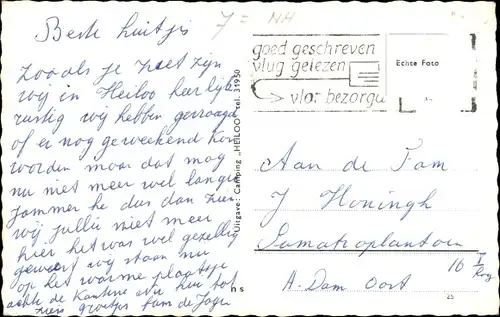 Beste luitjes
7 = NH
zooals je ziet zijn
wij in Heiloo heerlijk
rustig wij hebben gevraagd
of er nog geweekend kon
worden maar dat mag
nu niet meer wel langer
jammer he dus dan zien
wij jullie niet meer
hier het was wel gezellig
geweest wij staan nu
op het warme plaatsje
achter de Kantine nu hui tot
ziens groetjes fam de Jager
Uitgave: Camping „HEILOO" tel. 31950
n s
goed geschreven
vlug gelezen
vlot bezorgd
Echte Foto
Aan de Fam
J Honingh
Sumatraplantsoen
16 I
hoog
A. Dam Oost
25